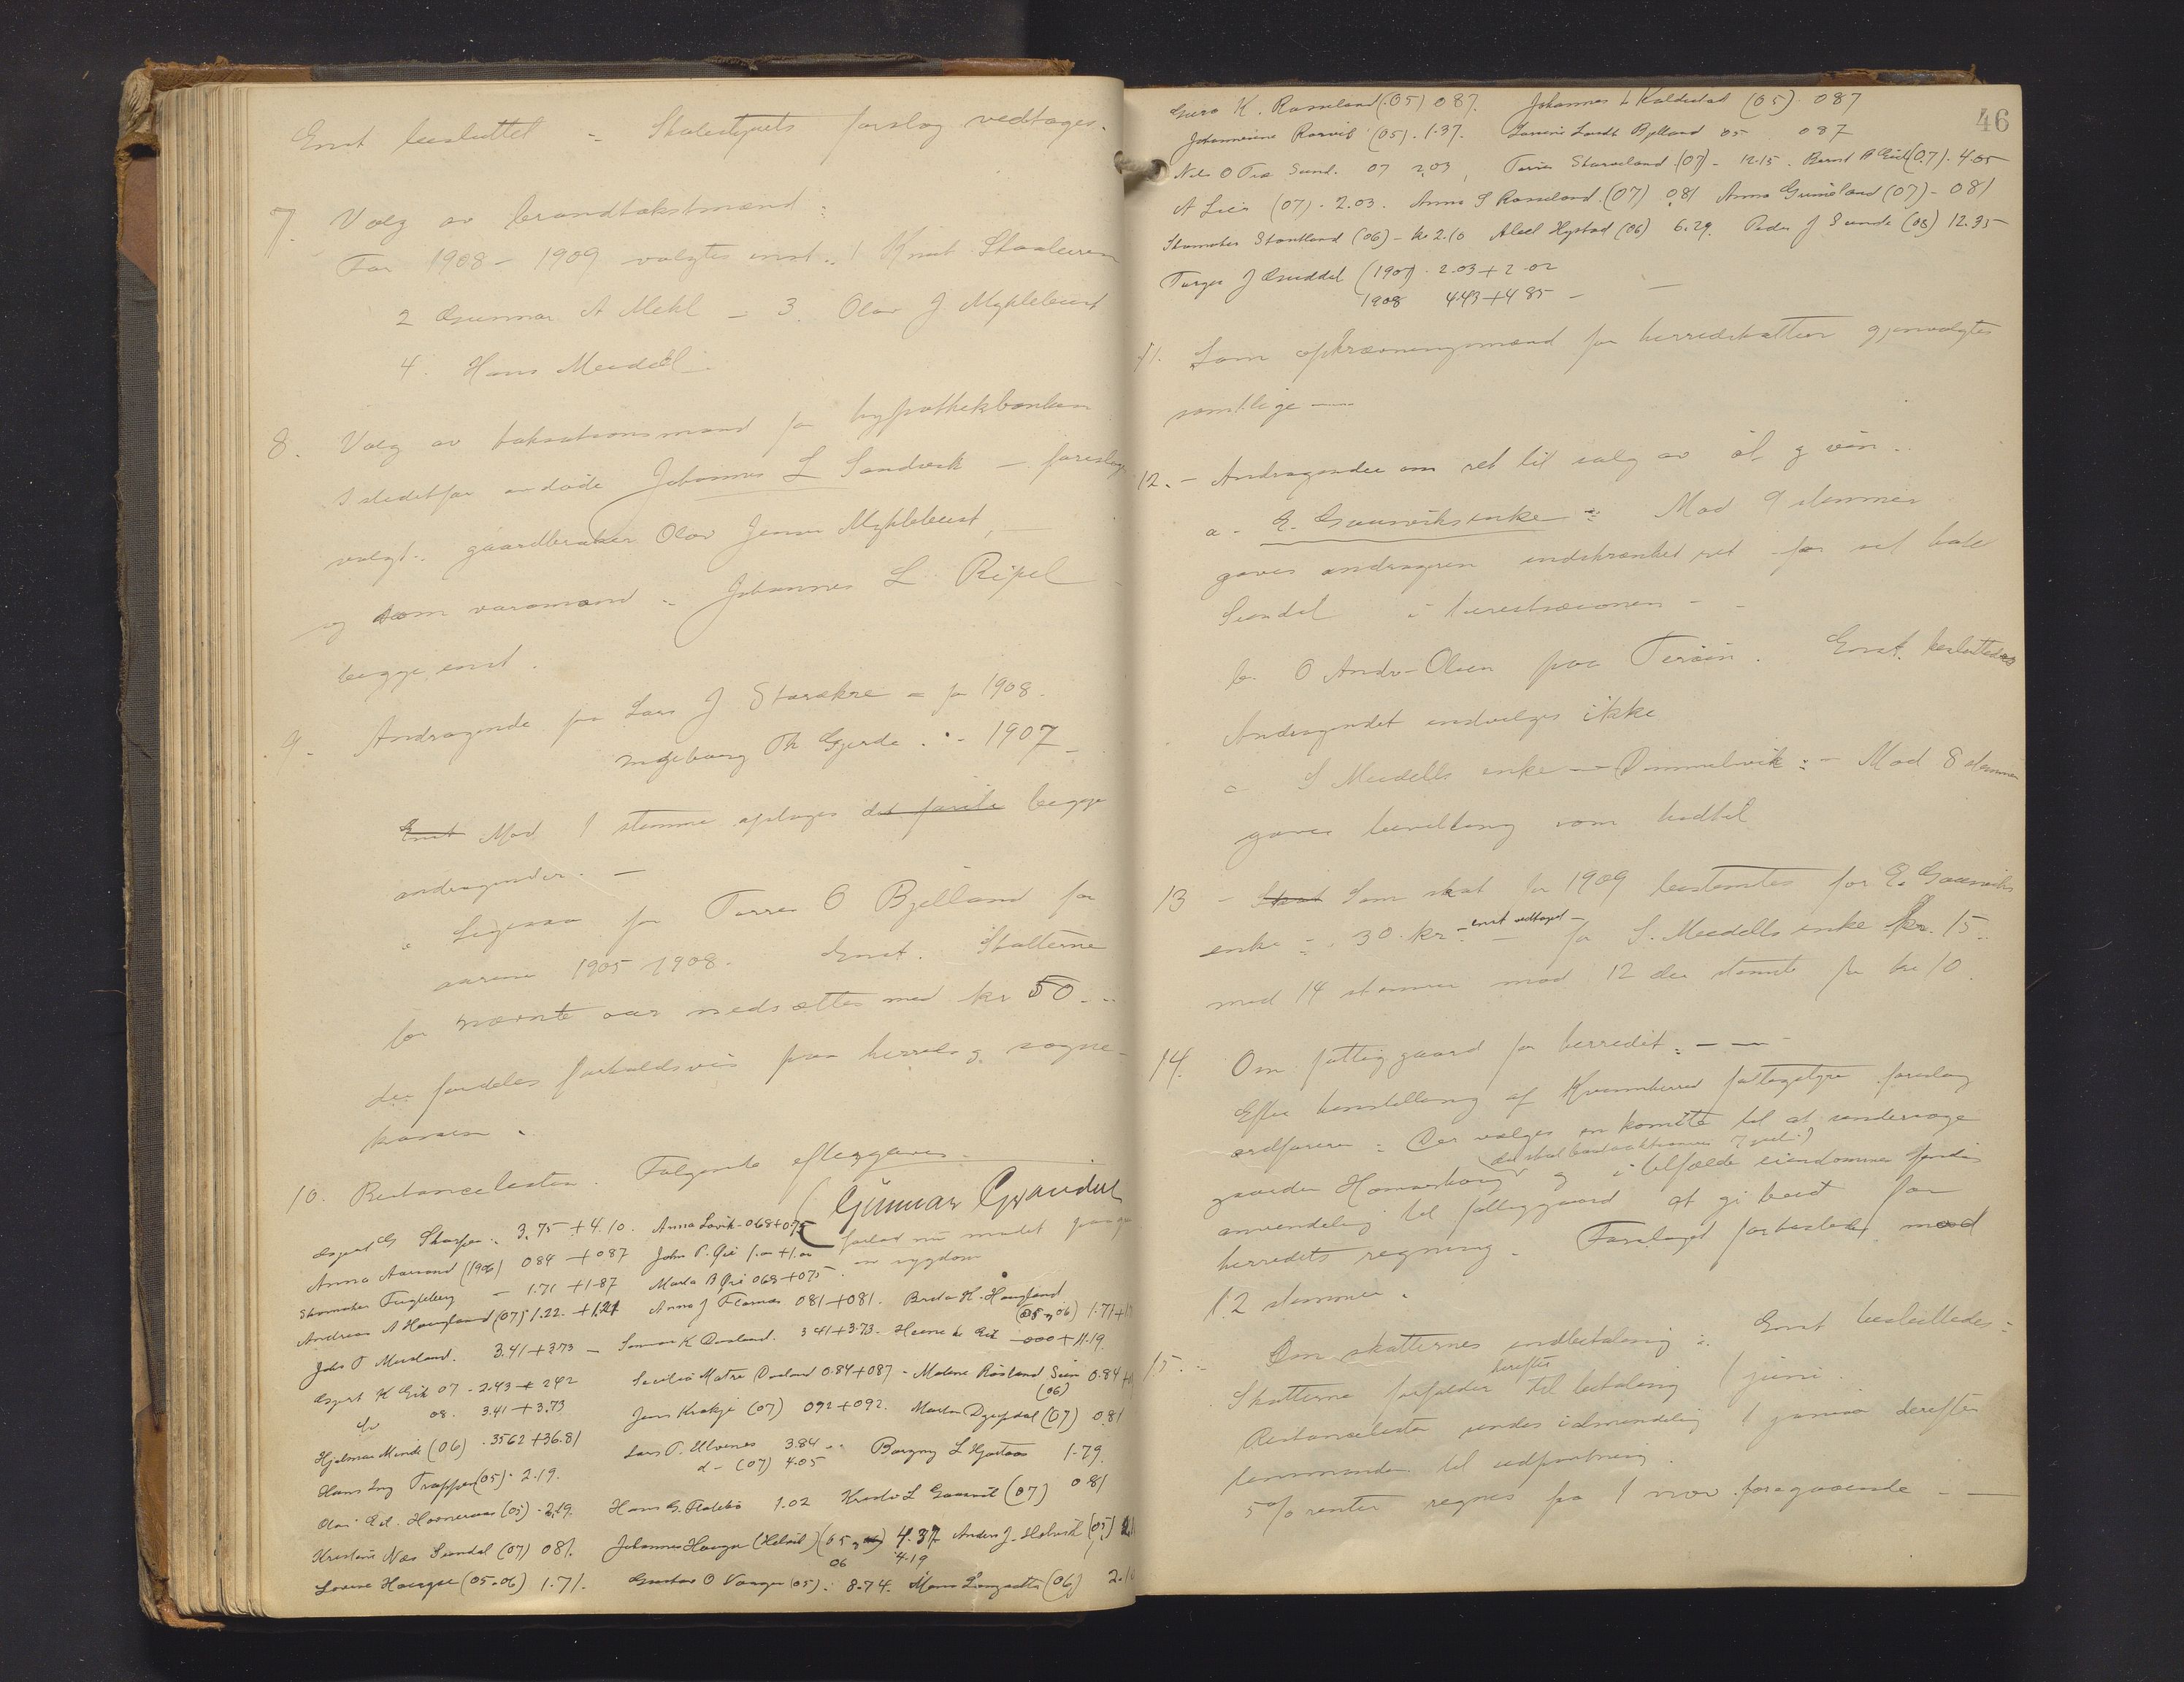 Enst besluttet - Skolestyrets forslag vedtages.
7. Valg av brandtakstmænd:
For 1908 - 1909 valgtes enst. 1 Knut Skaaluren
2 Gunnar A Mehl - 3. Olav J. Myklebust
4. Hans Meidell.
8. Valg av taksationsmand for hypothekbanken
I stedetfor avdøde Johannes L Sandvik - foreslaaes
valgt: gaardbruker Olav Jensen Myklebust,
og som varamand: Johannes L. Ripel -
begge enst.
9. Andragende fra Lars J Starakre - for 1908.
Ingeborg Th Gjerde. - 1907 -
Enst Mod 1 stemme avslaaes det første begge
andragender. -
Ligesaa for Torres O Bjelland for
aarene 1905-1908. Enst. Skatterne
for nævnte aar nedsættes med kr 50.-
der fordeles forholdsvis paa herreds og sogne-
kassen.
10. Restancelisten. Følgende eftergaves.
Gunnar Gravdal
forlod nu mødet paa gr
av sygdom
Aspert G Skorpen. 3.75 + 4.10. Anna Lovik - 068+075
Anna Aarsand (1906) 084 + 087 John P. Øie 1.00 + 1.00
Skomaker Fugleberg - 1.71 + 1.87 Marta B Øie 068+075
Andreas A Haugland (07) 1.22 + 1.21 Anna J Flornes 081+081. Brita K. Haugland (05 og 06) 1.71+1
John T Musland. 3.41+3.73 - K Dusland. 3.41+3.73 - 000 + 11.19.
Aspert K Eik 07 - 2.43 + 242 Secilia Matre Dusland 0.84+087 - Malene Røsland Seim (06) 0.84 +
do 08. 3.41 + 3.73
Hjelmar Minde (06) . 3562+36.81 Jens Krakje (07) 092+092. Marta Dyrdal (07) 0.81
Hans Ing Trappen (05). 2.19. Lars P. Ulvenes 3.84 Borgny L Hjortaas 1.79.
d - (07) 4.05
Olai Ed. (05) - 2.19. Hans G. Flatebø 1.02 Kristi L Gaasvik (07) 0.81
Kristine Næs Sundal (07) 081. Johannes Hauge (Helvik) (05 og 06) 4.37. Anders J. Helvik (05)
06 4.19
Lovise Haugse (05-06) 1.71. Gustav O Vangen (05). 8.74. Mons (06) 2.1
46
Guro K. Rosseland (05) 087. Johannes L Kaldestad (05). 087
Johannesine Rørvik (05). 1.37. Bjelland 05 087
Nils O Træ Sund. 07 2.03, Torris Starveland (07) - 12.15. Bernt A Eid (07). 4.05
A Lie (07) - 2.03. Anna S Rosseland (07) 081 Anna Guineland (07) - 081
Skomaker Stontland (06) - kr 2.10 Aksel Hystad (06) 6.29. Peder J Sunde (08) 12.35
Torger J Guddal (1907) 2.03 + 2.02
1908 4.43+4.85 -
11. Som opkrævningsmænd for herredskatten gjenvalgtes
samtlige -
12. - Andragender om ret til salg av øl og vin.
a - E. Gaasviks enke: Mod 9 stemmer
gaves andrageren indskrænket ret for sit hotel
Sundal i turistsæsonen -
b. O Andr-Olsen paa Terøen. Enst. besluttedes
Andragendet indvilges ikke
c S Meidells enke - Dimmelsvik: - Mod 8 stemmer
gaves bevilling som hidtil
13 - Skat Som skat for 1909 bestemtes for E. Gaasviks
enke: 30 kr. - enst vedtaget - for S. Meidells enke kr. 15.
med 14 stemmer mod 12 der stemte for kr 10.
14. Om fattiggaard for herredet: -
Efter henstilling af Kvinnherred fattigstyre foreslog
ordføreren: Der vælges en komite til at undersøge
gaarden og i tilfælde eiendommen findes
anvendelig til fattiggaard at gi bud for
herredets regning. Forslaget mod
12 stemmer.
15. - Om skatternes indbetaling: Enst besluttedes:
Skatterne forfalder herefter til betaling 1 juni.
Restancelisten sendes i almindelighed 1 januar derefter
lensmanden til udpantning.
5% renter regnes fra 1 nov. foregaaende -